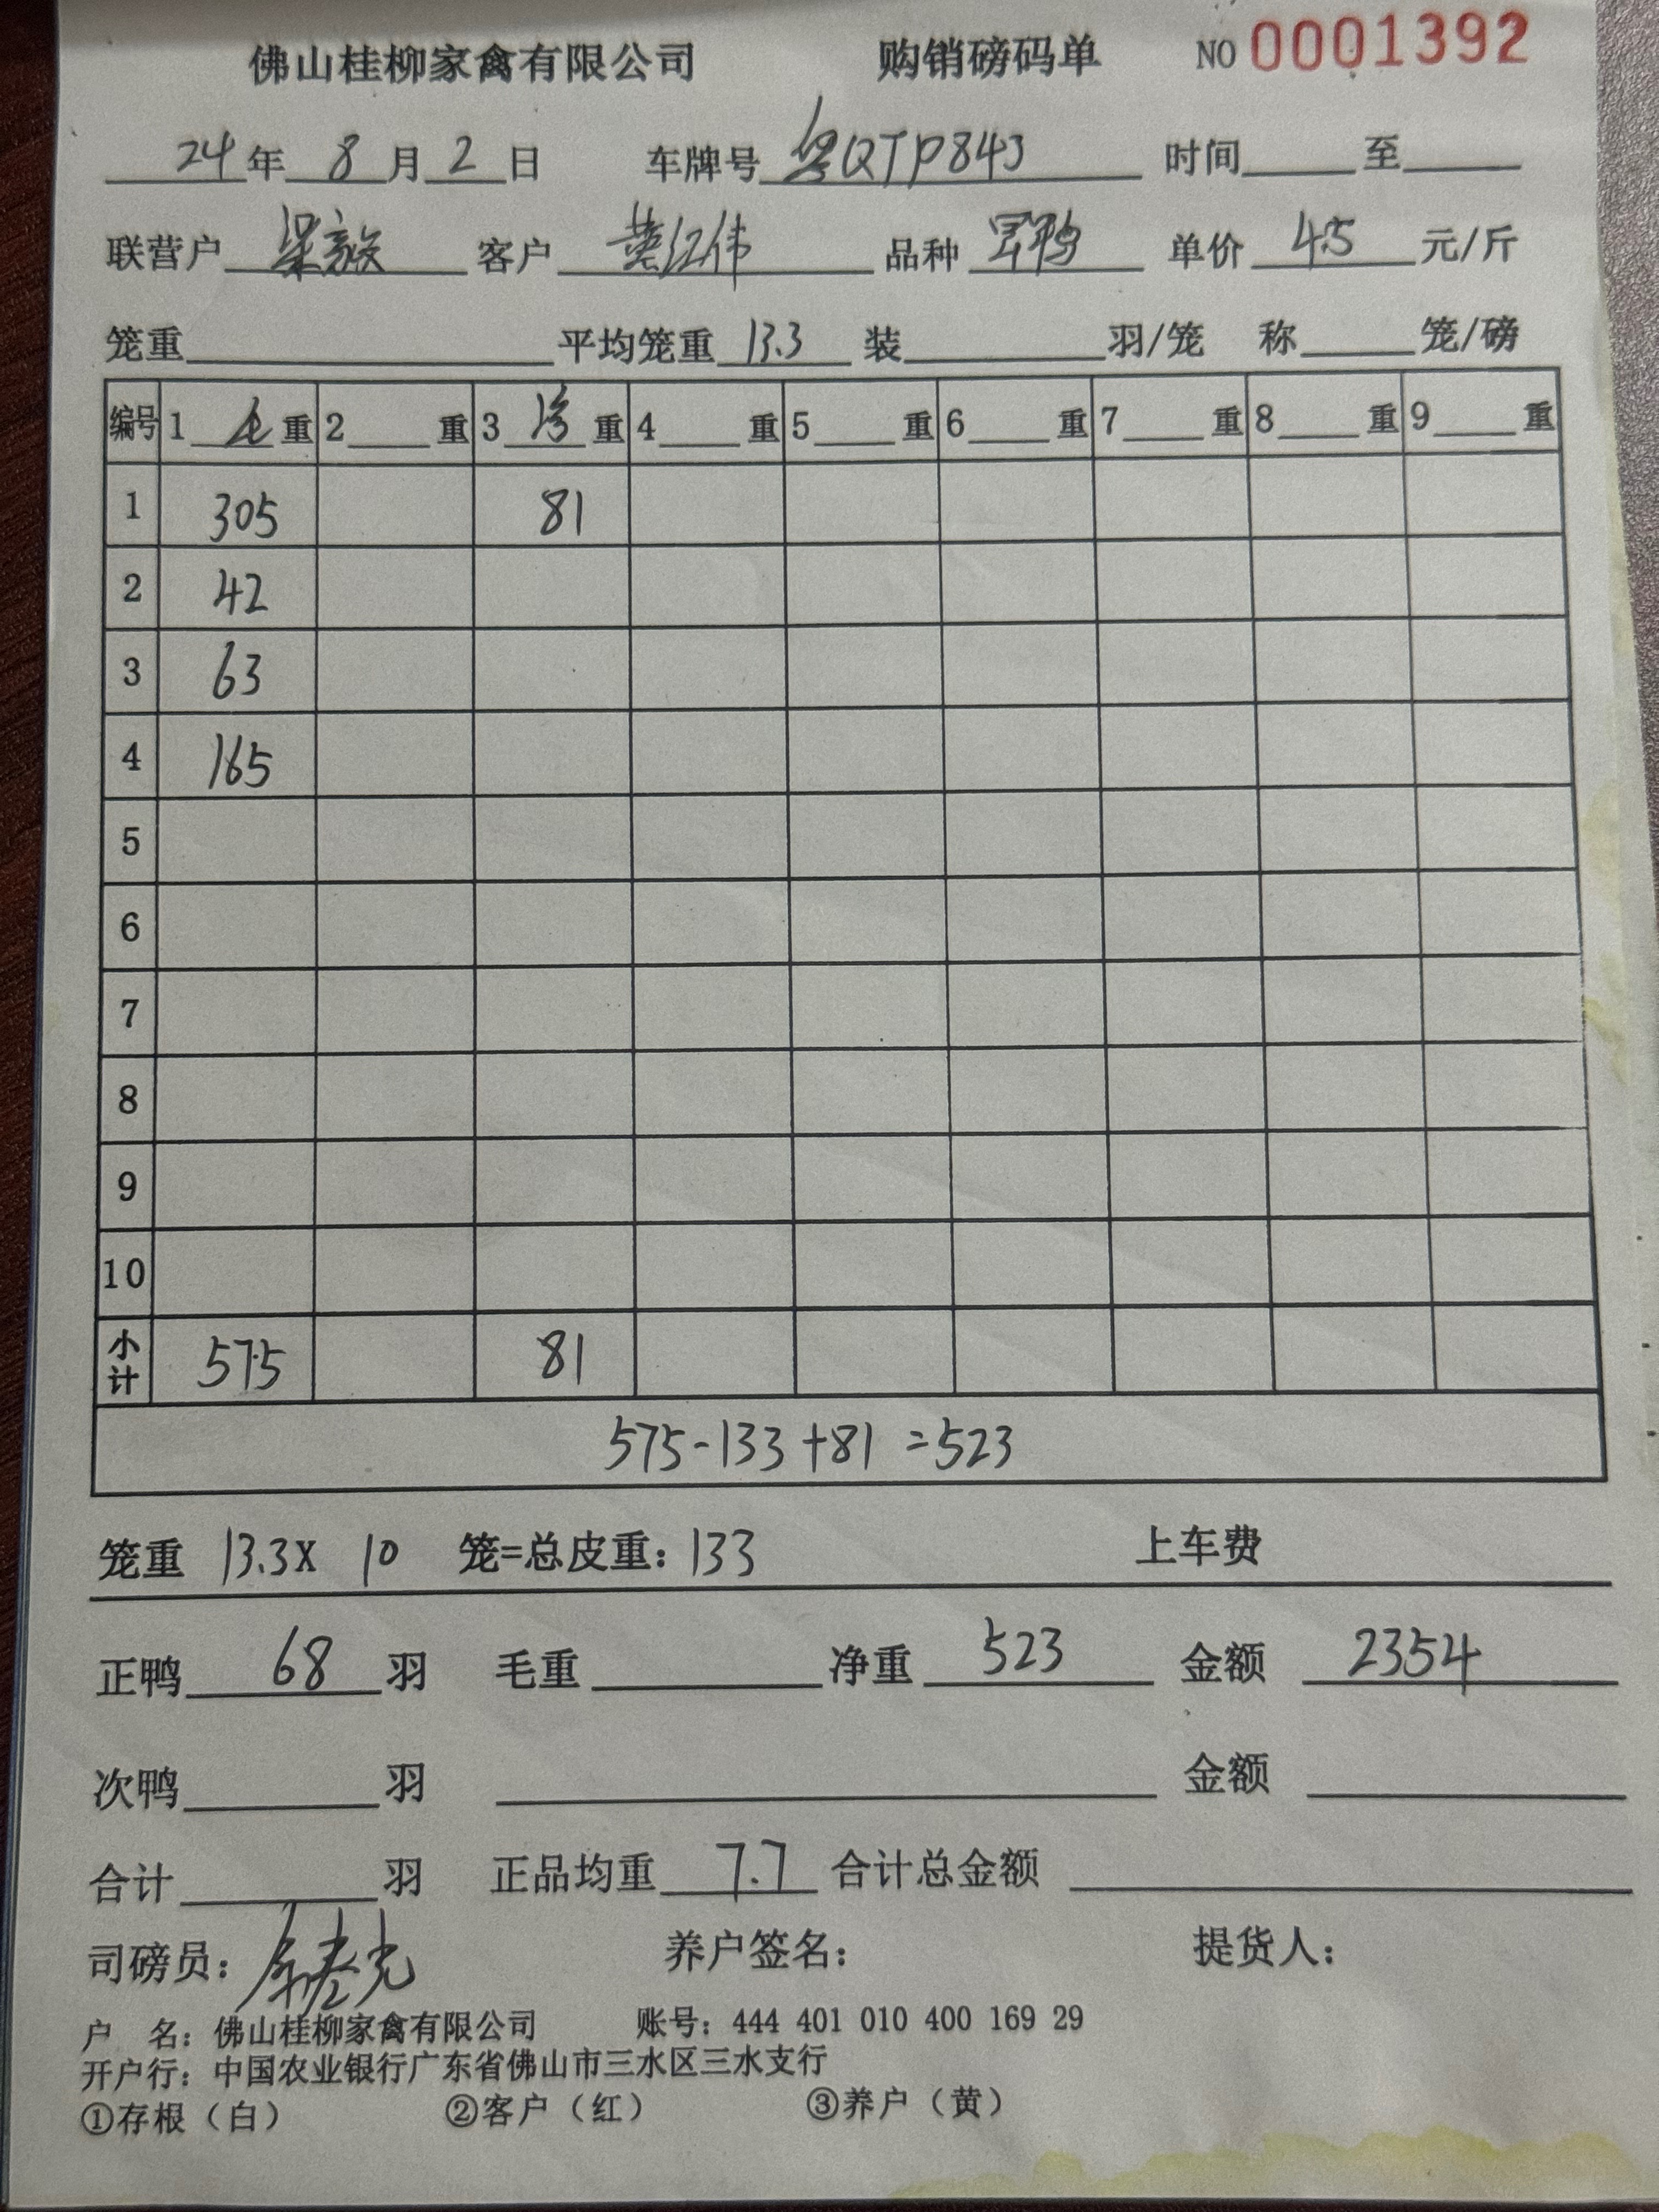 佛山桂柳家禽有限公司 购销磅码单 NO 0001392
24年 8月 2日 车牌号 粤QTP843 时间 至
联营户 梁 客户 黄红伟 品种 鸭 单价 4.5 元/斤
笼重 平均笼重 13.3 装 羽/笼 称 笼/磅
编号 1 毛 重 2 重 3 重 4 重 5 重 6 重 7 重 8 重 9 重
1 305 81
2 42
3 63
4 165
5
6
7
8
9
10
小计 575 81
575-133+81=523
笼重 13.3X 10 笼=总皮重：133 上车费
正鸭 68 羽 毛重 净重 523 金额 2354
次鸭 羽 金额
合计 羽 正品均重 7.7 合计总金额
司磅员： 养户签名： 提货人：
户 名：佛山桂柳家禽有限公司 账号：444 401 010 400 169 29
开户行：中国农业银行广东省佛山市三水区三水支行
①存根（白） ②客户（红） ③养户（黄）